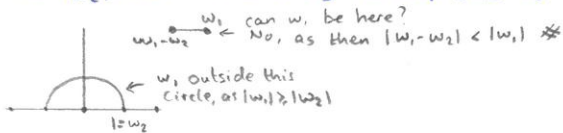 w₁ can w₁ be here?
w₁-w₂ ← No, as then |w₁-w₂| < |w₁| ※
← w₁ outside this
circle, as |w₁| ≥ |w₂|
1=w₂